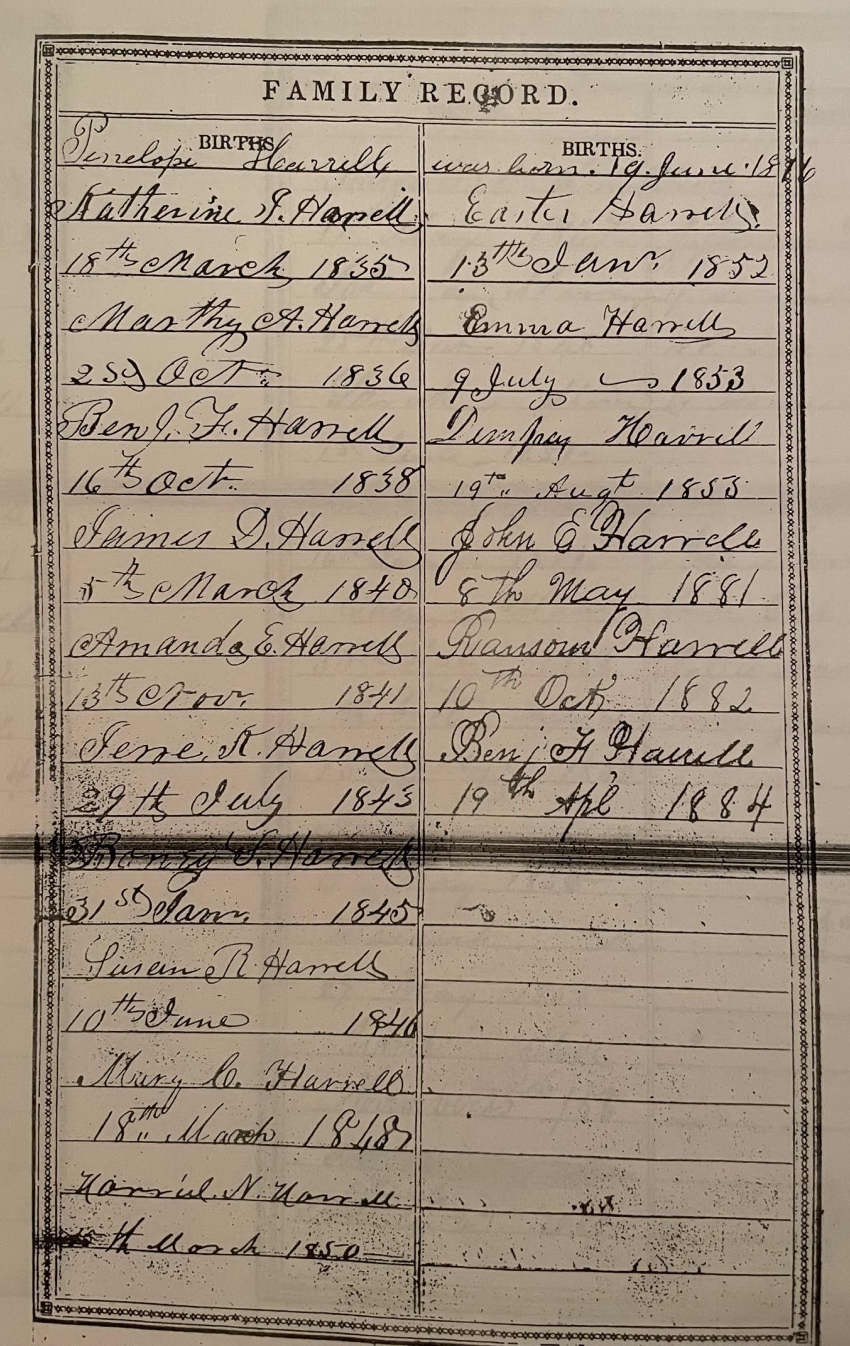 FAMILY RECORD.
BIRTHS.
BIRTHS.
Penelope Harrell was born. 19. June. 18
Katherine Harrell
18th March 1835
Marthy A. Harrell
Oct. 1836
Benj. F. Harrell
16th Oct. 1838
James D. Harrell
5th March 1840
Amanda E. Harrell
13th Nov. 1841
Jesse K. Harrell
29th July 1843
Harrell
31st Jan. 1845
Susan R Harrell
10th June 1846
Mary C. Harrell
18th March 1848
N. Harrell
th March 1850
Easter Harrell
13th Janr. 1852
Emma Harrell
9 July 1853
Dempsey Harrell
19th Augt 1855
John E Harrell
8th May 1881
Ransom Harrell
10th Oct 1882
Benj F Harrell
19th Apl 1884